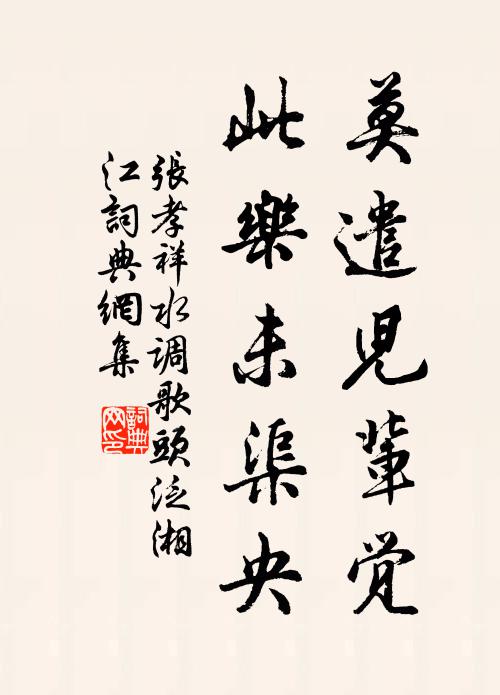 莫遣兒輩覺
此樂未渠央
張孝祥水调歌頭泛湘
江詞典網集
詞典網印